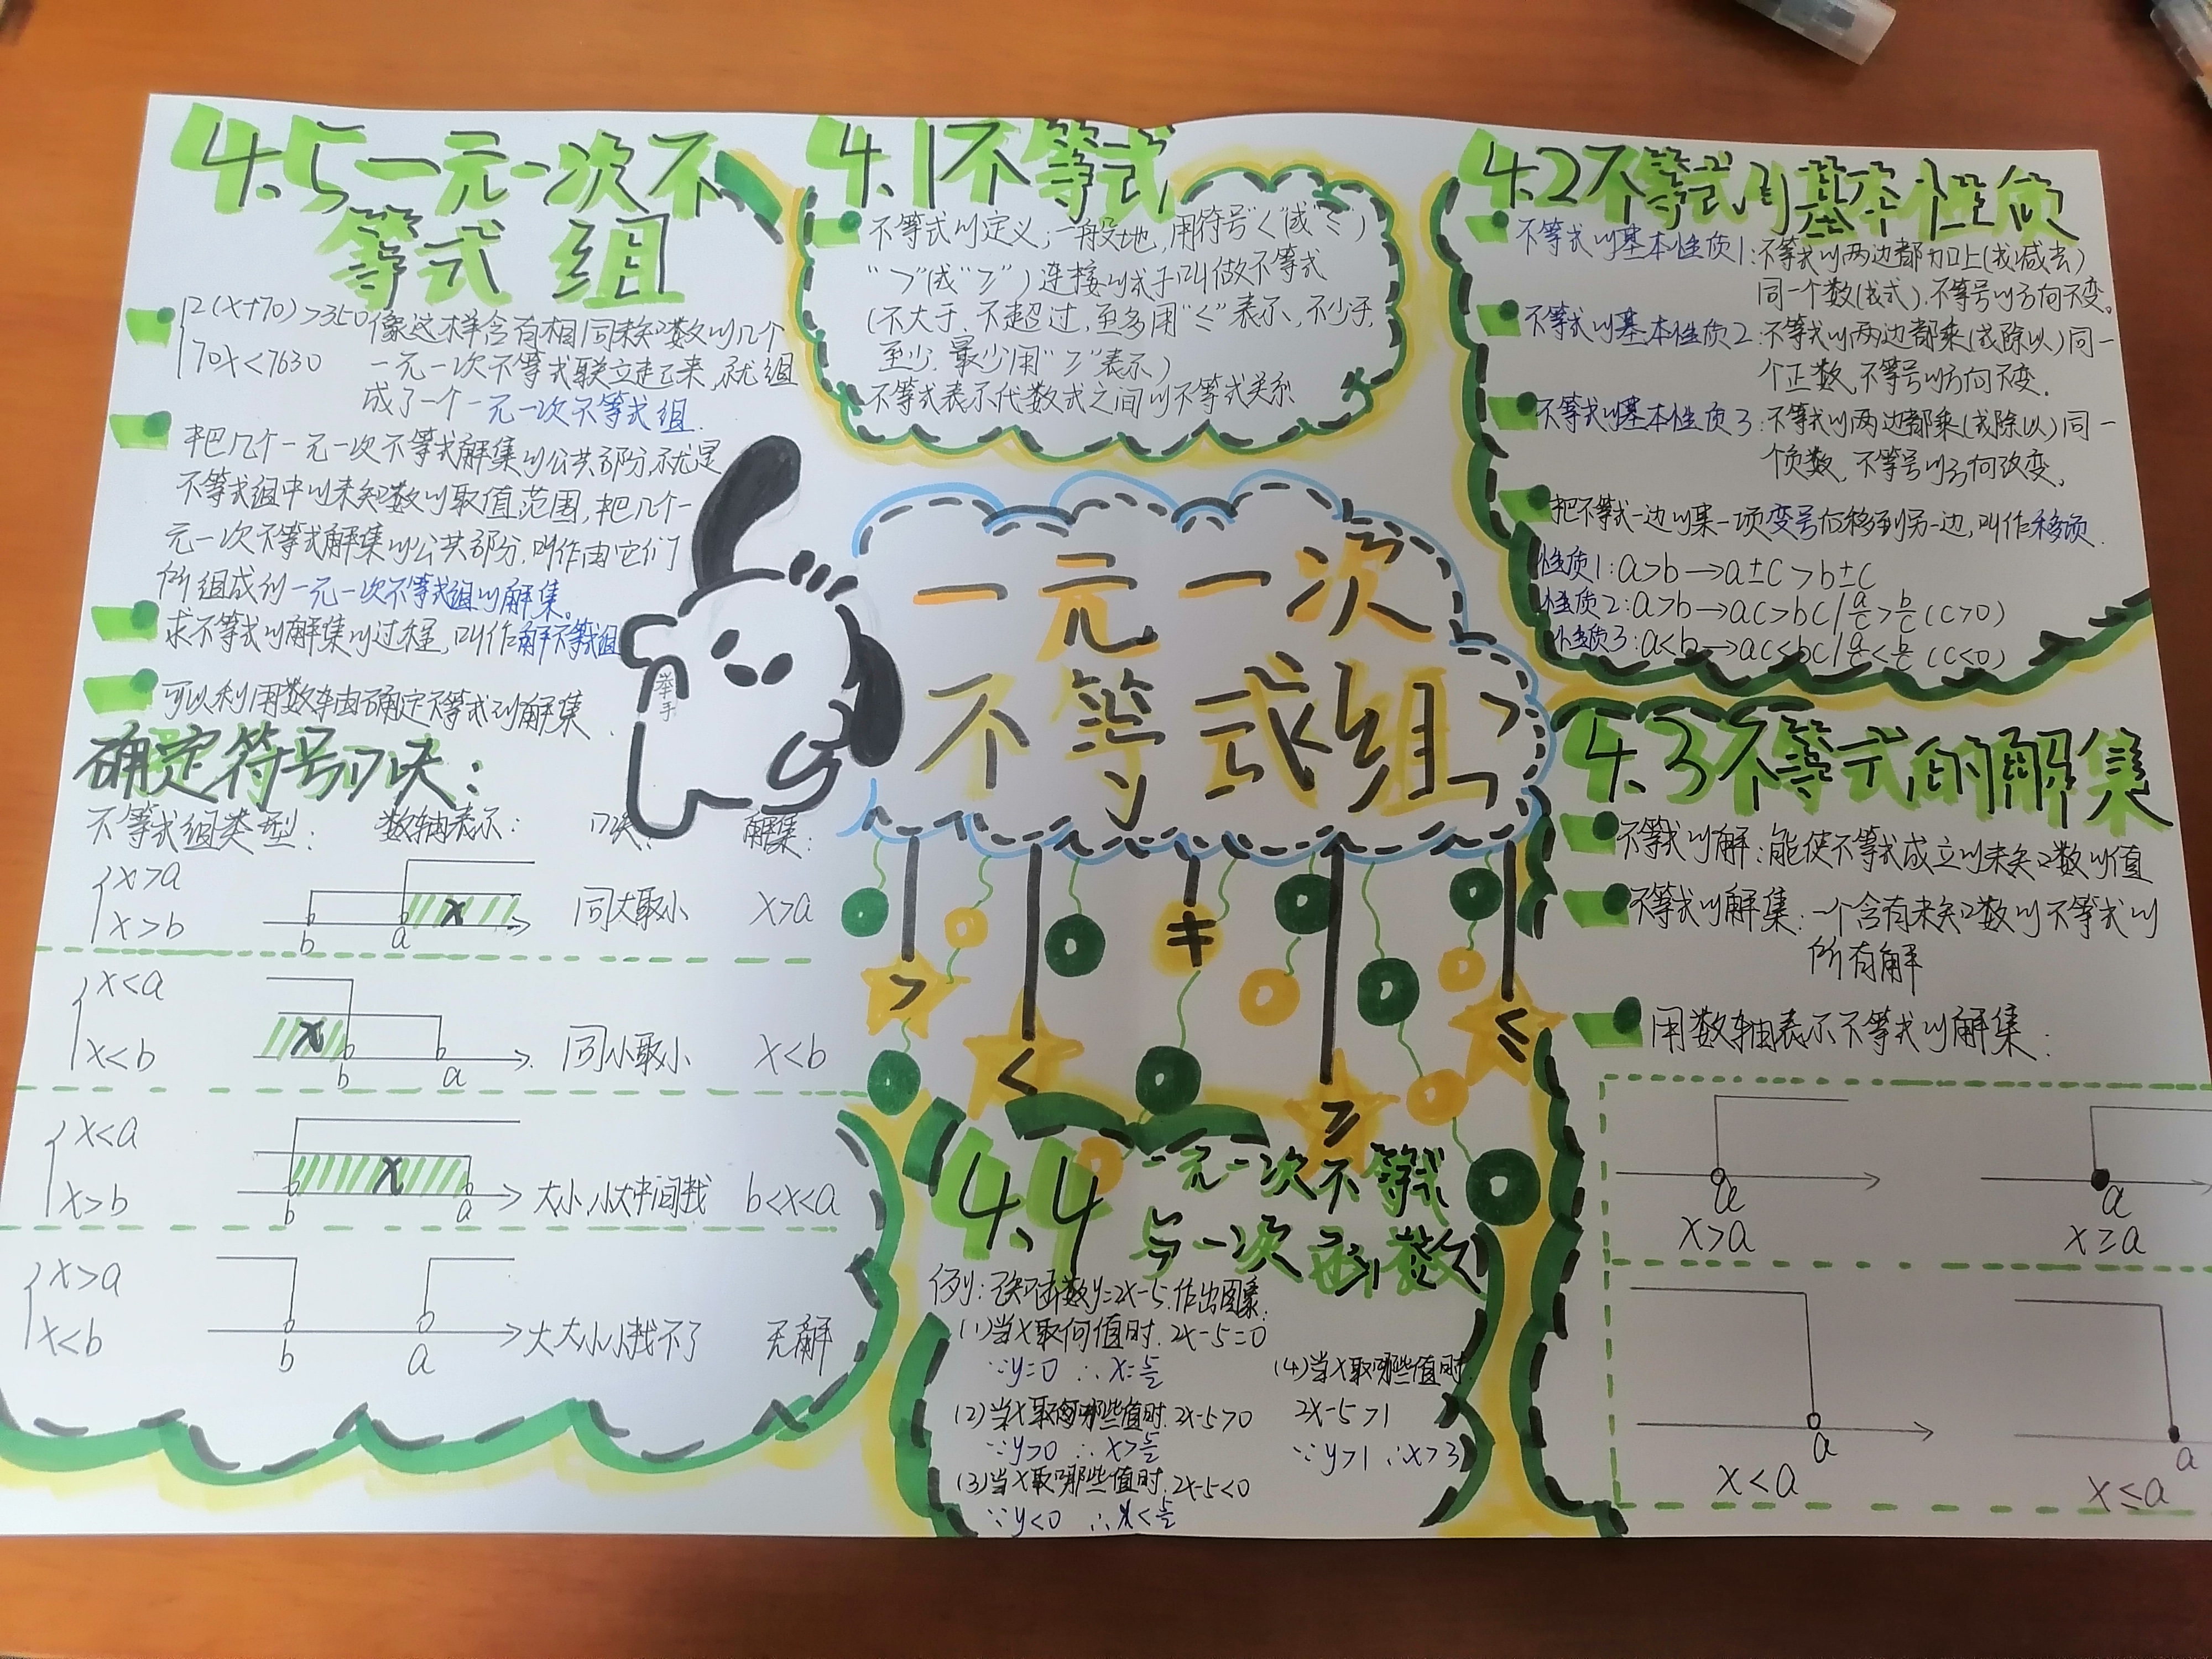 4.5一元一次不
等式组
2(x+70)>350 像这样含有相同未知数的几个
70x<7630 一元一次不等式联立起来,就组
成了一个一元一次不等式组.
把几个一元一次不等式解集的公共部分,就是
不等式组中的未知数的取值范围,把几个一
元一次不等式解集的公共部分,叫作由它们
所组成的一元一次不等式组的解集。
求不等式的解集的过程,叫作解不等式组
可以利用数轴确定不等式的解集.
确定符号口决:
不等式组类型: 数轴表示: 口决: 解集:
x>a
x>b
b a x
同大取小 x>a
x<a
x<b
x b a
同小取小 x<b
x<a
x>b
b x a
大小,小大中间找 b<x<a
x>a
x<b
b a
大大小小找不了 无解
4.1不等式
不等式的定义:一般地,用符号"<"(或"≤")
">"(或"≥")连接的式子叫做不等式
(不大于,不超过,至多用"≤"表示,不少于,
至少,最少用"≥"表示)
不等式表示代数式之间的不等式关系
举手
一元一次
不等式组
> < ≠ ≥ ≤
4.4 一元一次不等式
与一次函数
例:已知函数y=2x-5.作出图象:
(1)当x取何值时.2x-5=0
∵y=0 ∴x=5/2
(2)当x取哪些值时.2x-5>0
∵y>0 ∴x>5/2
(3)当x取哪些值时.2x-5<0
∵y<0 ∴x<5/2
(4)当x取哪些值时.
2x-5>1
∵y>1 ∴x>3
4.2不等式的基本性质
不等式的基本性质1:不等式的两边都加上(或减去)
同一个数(或式),不等号的方向不变。
不等式的基本性质2:不等式的两边都乘(或除以)同一
个正数,不等号的方向不变.
不等式的基本性质3:不等式的两边都乘(或除以)同一
个负数,不等号的方向改变.
把不等式一边的某一项变号后移到另一边,叫作移项.
性质1:a>b→a±c>b±c
性质2:a>b→ac>bc/a/c>b/c(c>0)
性质3:a<b→ac<bc/a/c<b/c(c<0)
4.3不等式的解集
不等式的解:能使不等式成立的未知数的值
不等式的解集:一个含有未知数的不等式的
所有解
用数轴表示不等式的解集:
a a
x>a x≥a
a a
x<a x≤a